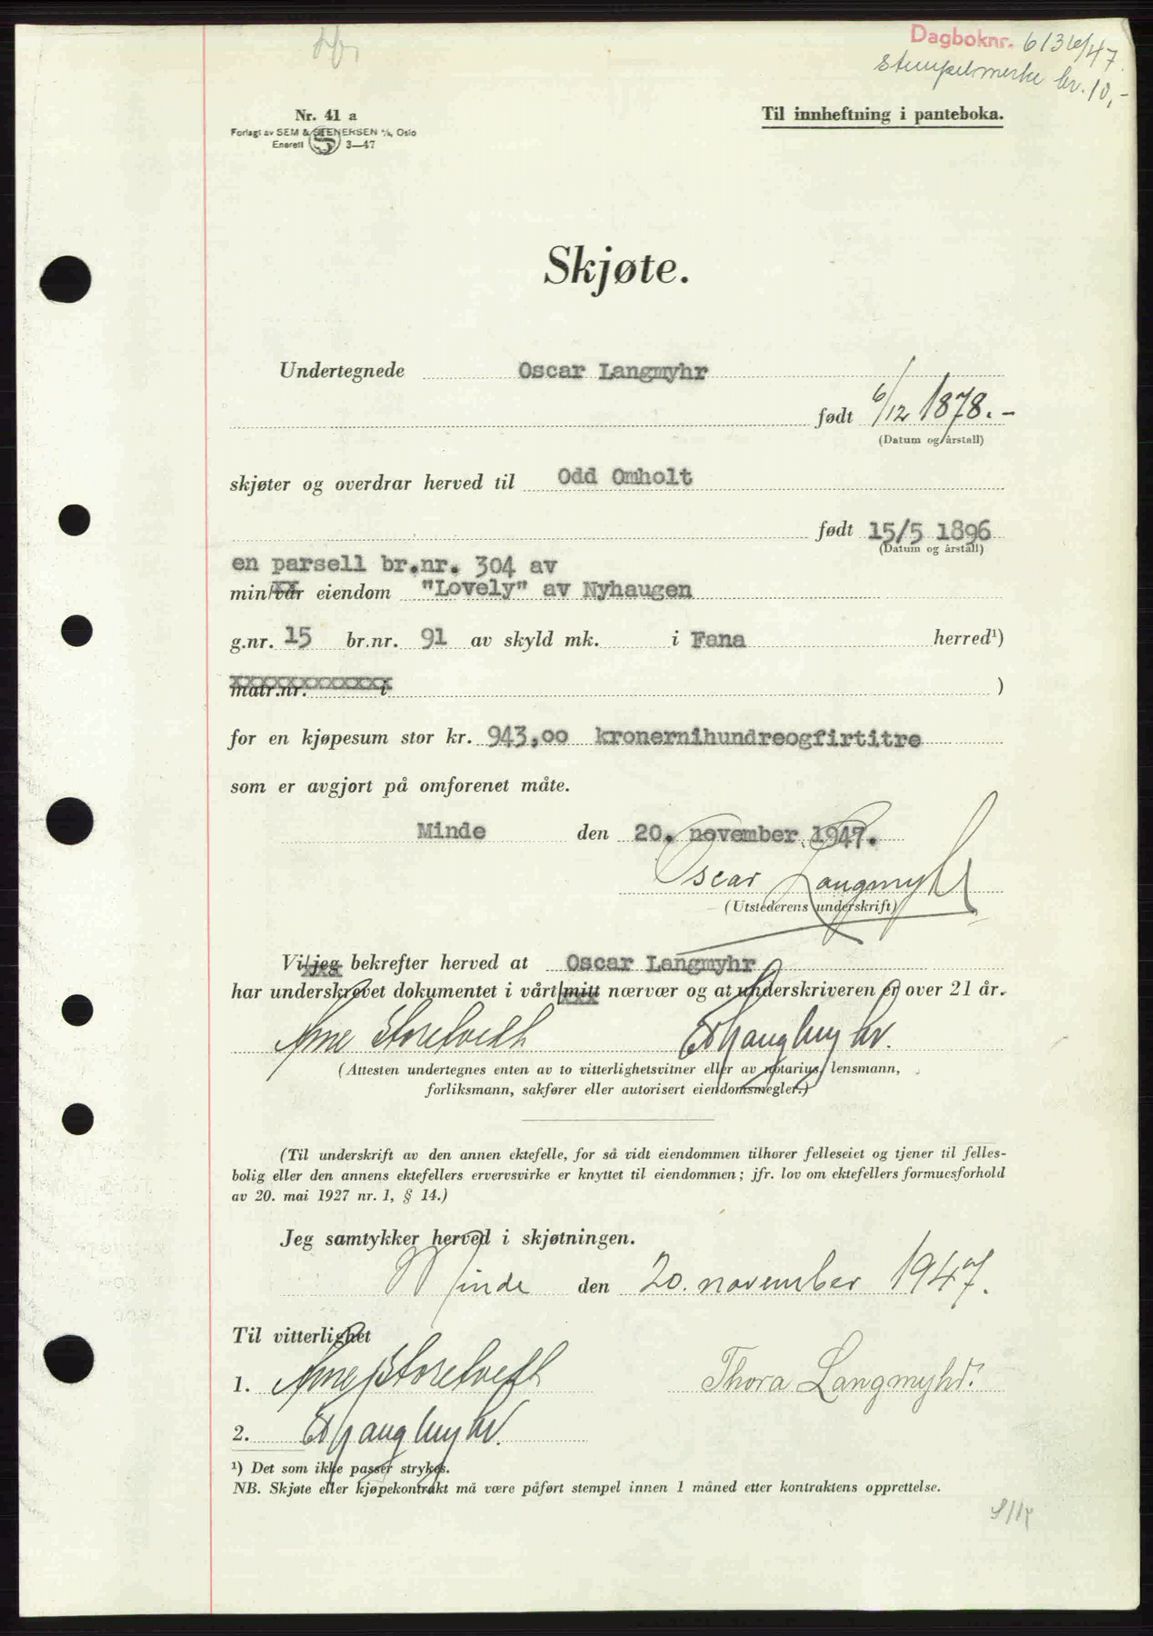 Dagboknr. 6136/47.
stempelmerke kr. 10,-
Nr. 41 a
Forlagt av SEM & STENERSEN A/S, Oslo
Enerett 3—47
Til innheftning i panteboka.
Skjøte.
Undertegnede Oscar Langmyhr
født 6/12 1878.-
(Datum og årstall)
skjøter og overdrar herved til Odd Omholt
født 15/5 1896
(Datum og årstall)
en parsell br.nr. 304 av
min/vår eiendom "Lovely" av Nyhaugen
g.nr. 15 br.nr. 91 av skyld mk. i Fana herred¹)
matr.nr. i )
for en kjøpesum stor kr. 943,00 kronernihundreogfirtitre
som er avgjort på omforenet måte.
Minde den 20. november 1947.
Oscar Langmyhr
(Utstederens underskrift)
Vi/jeg bekrefter herved at Oscar Langmyhr
har underskrevet dokumentet i vårt/mitt nærvær og at underskriveren er over 21 år.
Arne Storetvedt
(Attesten undertegnes enten av to vitterlighetsvitner eller av notarius, lensmann,
forliksmann, sakfører eller autorisert eiendomsmegler.)
(Til underskrift av den annen ektefelle, for så vidt eiendommen tilhører felleseiet og tjener til felles-
bolig eller den annens ektefellers ervervsvirke er knyttet til eiendommen; jfr. lov om ektefellers formuesforhold
av 20. mai 1927 nr. 1, § 14.)
Jeg samtykker herved i skjøtningen.
Minde den 20. november 1947.
Til vitterlighet
1. Arne Storetvedt Thora Langmyhr.
2.
¹) Det som ikke passer strykes.
NB. Skjøte eller kjøpekontrakt må være påført stempel innen 1 måned etter kontraktens opprettelse.